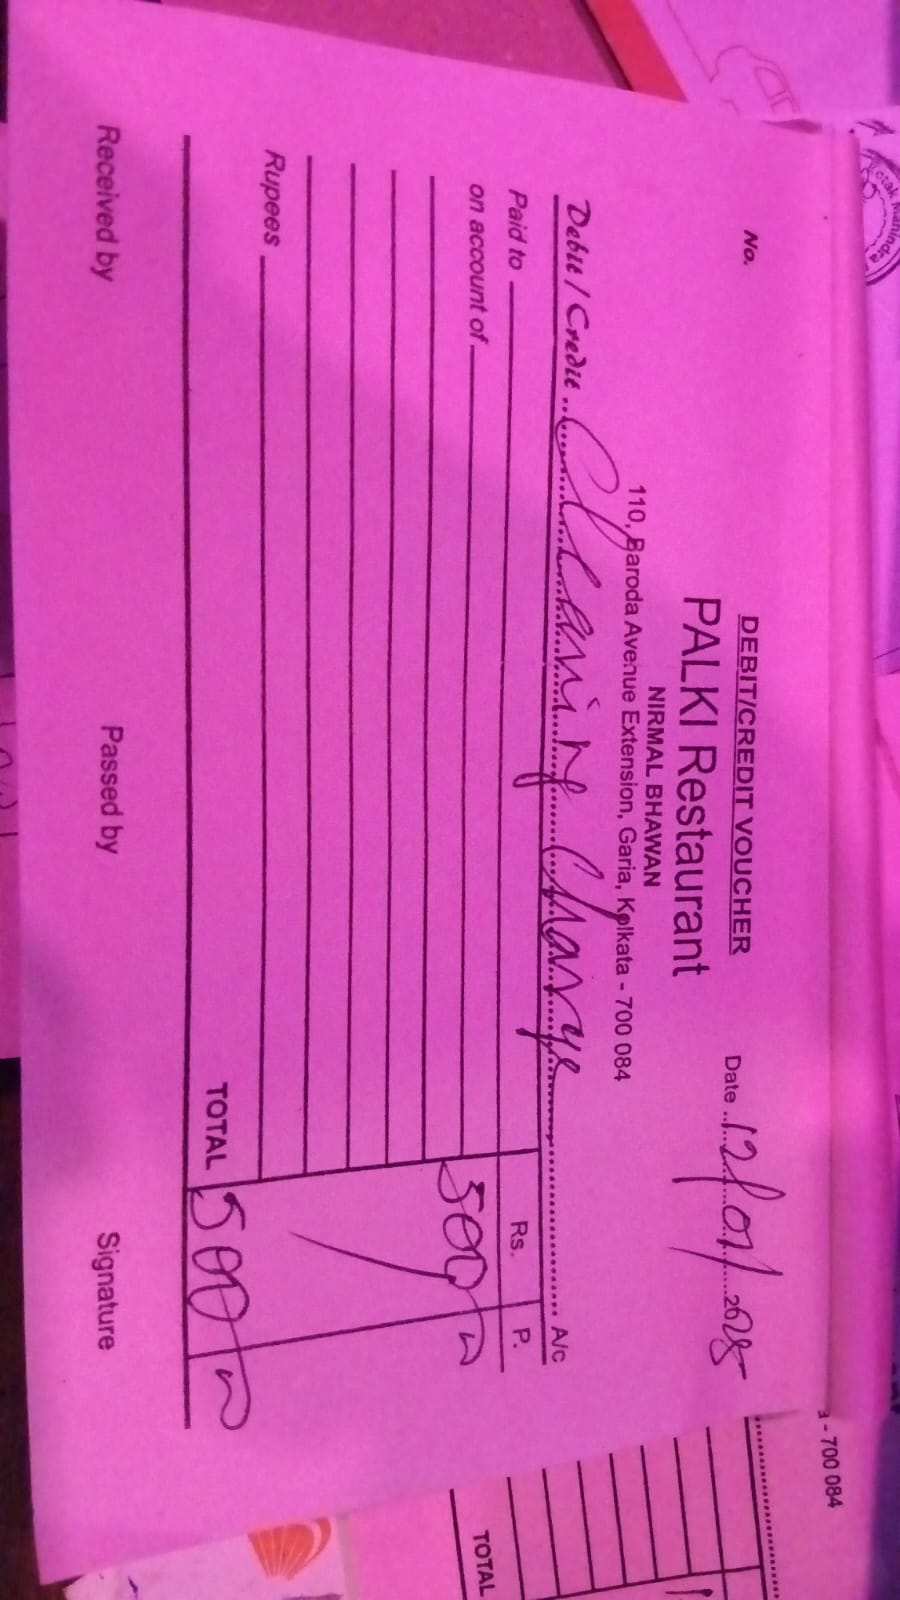 DEBIT/CREDIT VOUCHER
PALKI Restaurant
NIRMAL BHAWAN
110, Baroda Avenue Extension, Garia, Kolkata - 700 084
No.
Date 12/01/2025
Debit / Credit Cleaning Charge A/c
Paid to
Rs.
P.
on account of
500
Rupees
TOTAL
500
Received by
Passed by
Signature
- 700 084
TOTAL